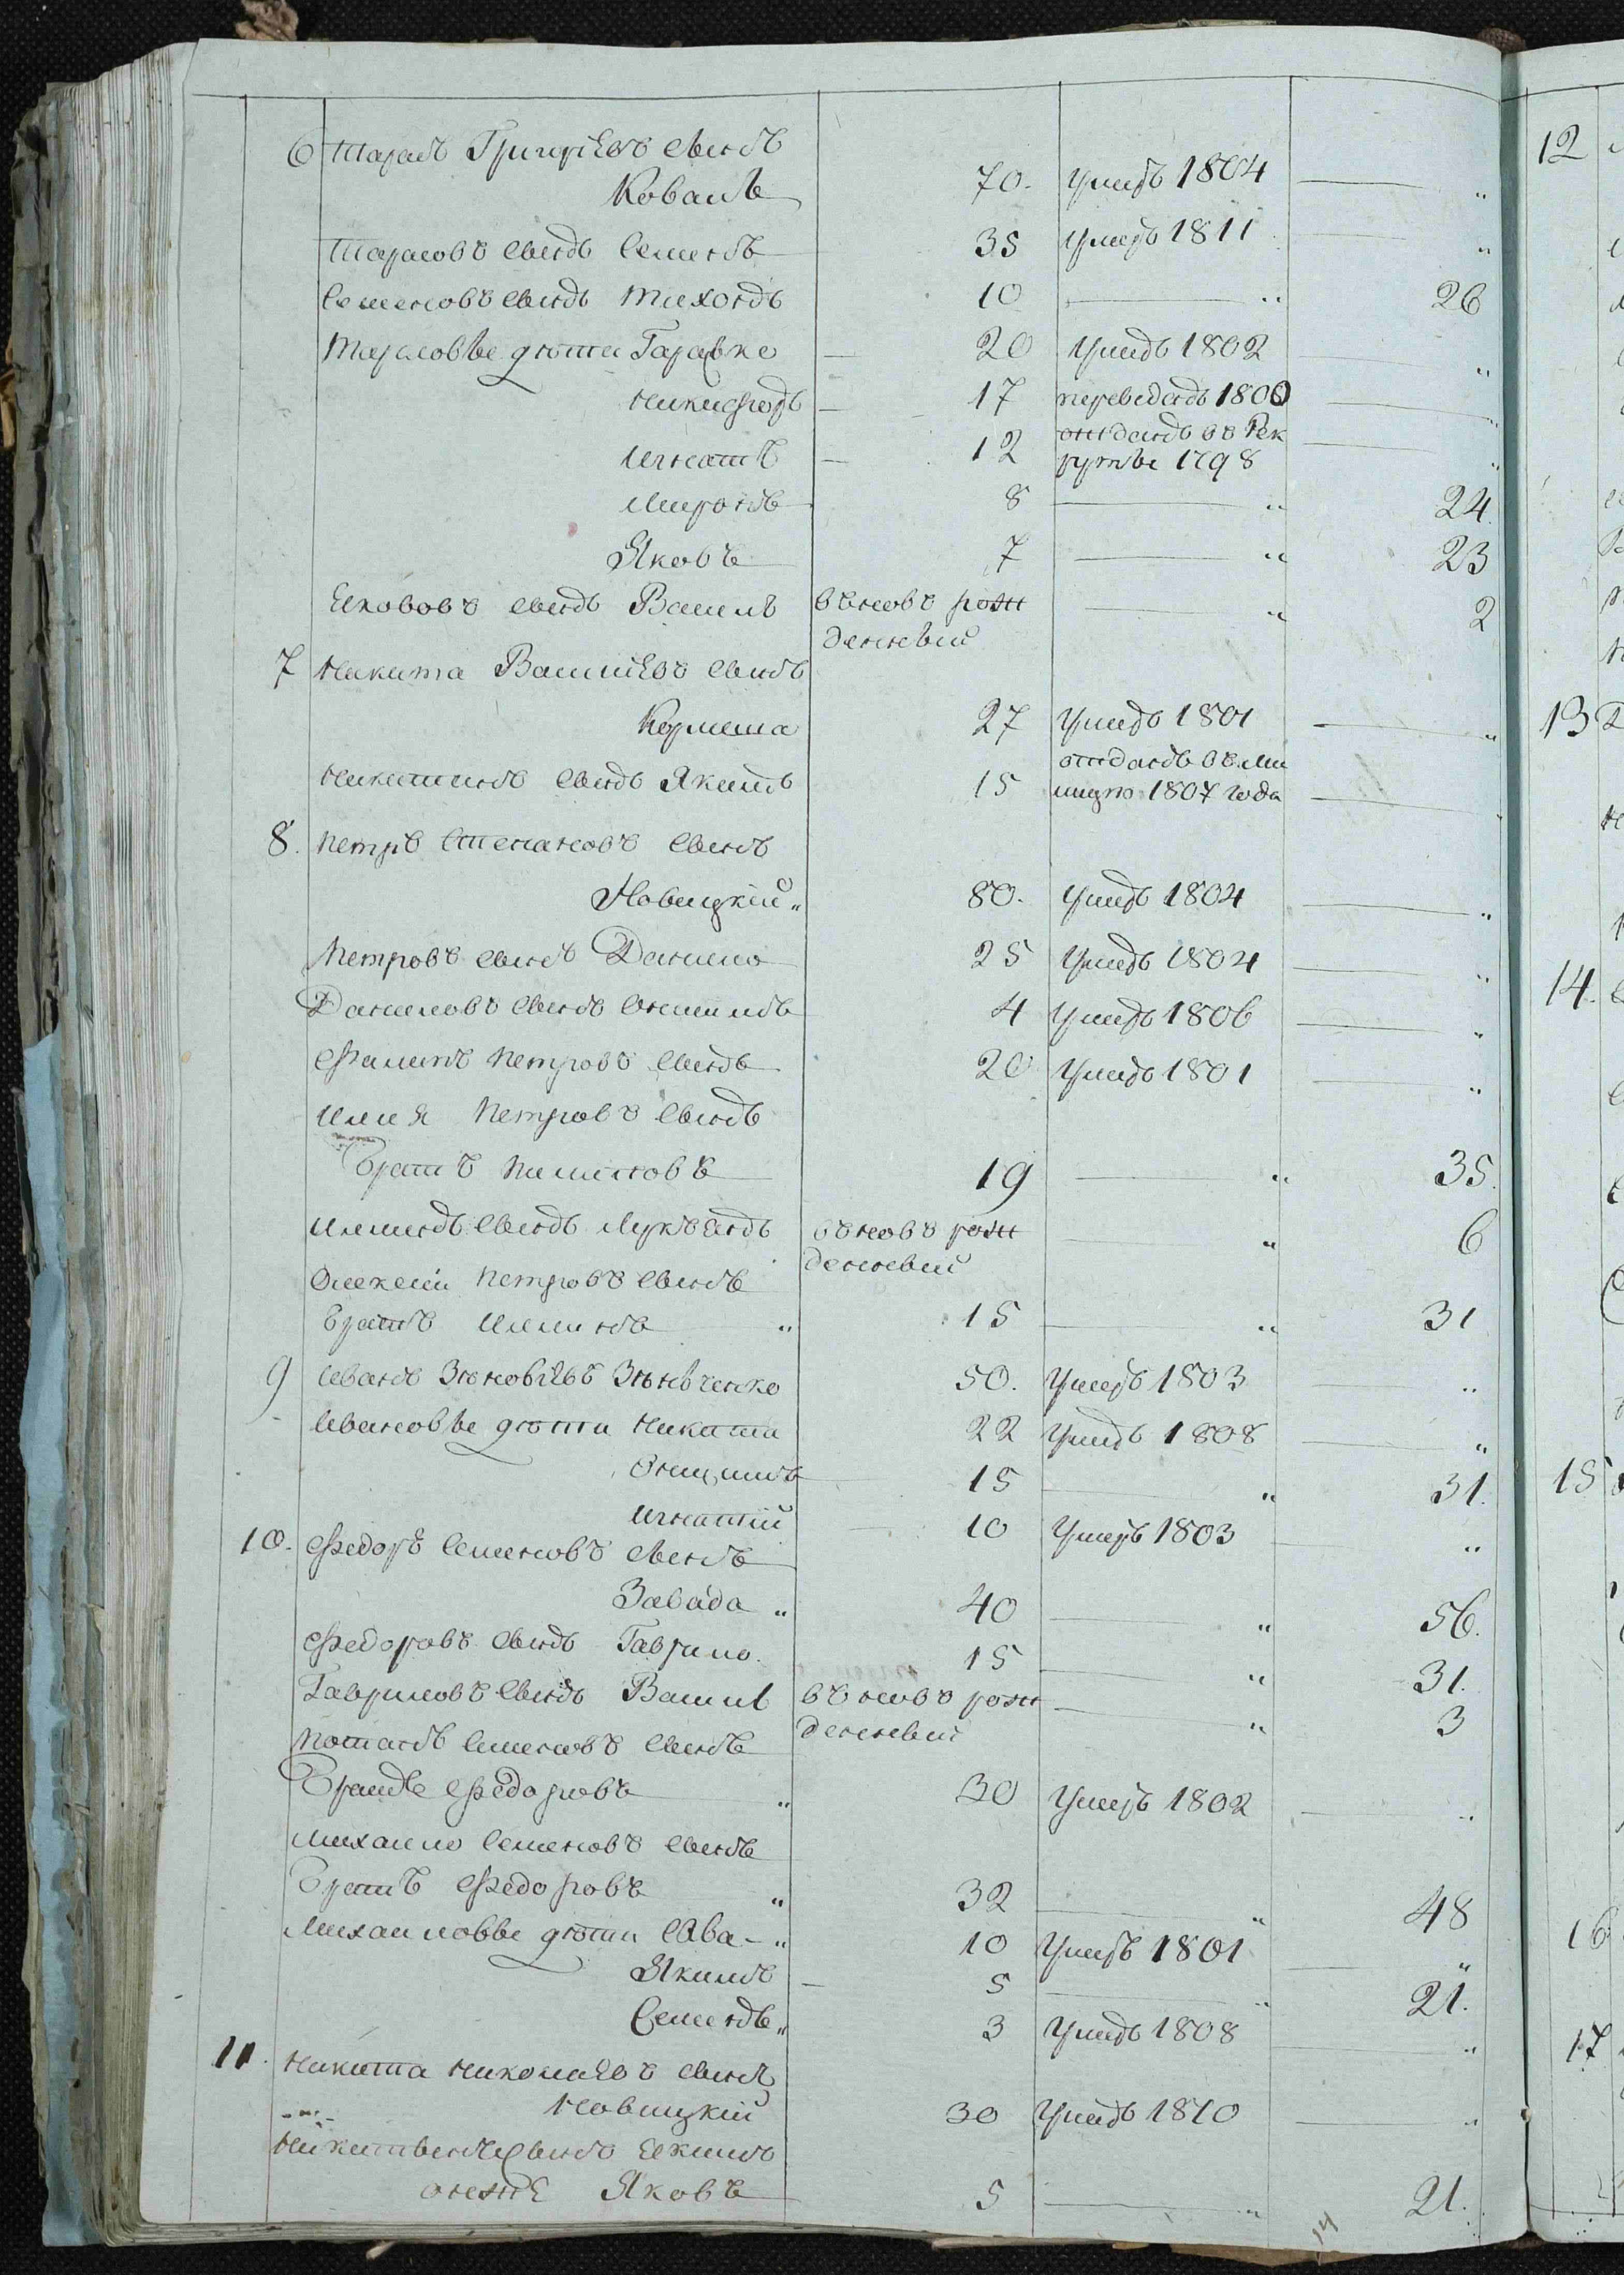 6 Тарасъ Григорієвъ сынъ
Коваль 70. умеръ 1804 „
Тарасовъ сынъ Семенъ 35 умеръ 1811 „
Семеновъ сынъ Тихонъ 10 „ 26
Тарасовы дѣти Гараско 20 умеръ 1802 „
Никифоръ 17 переведенъ 1800 „
Игнатъ 12 отданъ въ Рек
руты 1798 „
Миронъ 8 „ 24.
Яковъ 7 „ 23
Якововъ сынъ Василь вѣновъ рож „ 2
денный
7 Никита Василієвъ сынъ
27 умеръ 1801 „
Никитинъ сынъ Якимъ 15 отданъ въ ми
лицію 1807 года
8. Петръ Степановъ сынъ
Новицкій „ 80. умеръ 1804 „
Петровъ сынъ Данило 25 умеръ 1804 „
Даниловъ сынъ 4 умеръ 1806 „
Филипъ Петровъ сынъ 20 умеръ 1801 „
Илия Петровъ сынъ
братъ Филиповъ 19 „ 35.
Ильинъ сынъ Лукъянъ въновъ рож „ 6
денный
Олексѣй Петровъ сынъ
братъ Ильинъ „ 15 „ 31
9 Иванъ Зѣновіевъ Зѣнченко 50. умеръ 1803 „
Ивановы дѣти Никита 22 умеръ 1808 „
Онищимъ 15 „ 31.
Игнатій 10 умеръ 1803 „
10. Федоръ Семеновъ сынъ
Завада „ 40 „ 56.
Федоровъ сынъ Гаврило. 15 „ 31.
Гавриловъ сынъ Василь въновъ рож „ 3
денный
Потапъ Семеновъ сынъ
братъ Федоровъ „ 30 умеръ 1802 „
Михайло Семеновъ сынъ
братъ Федоровъ „ 32 „ 48
Михайловы дѣти Сава „ 10 умеръ 1801 „
Якимъ 5 „ 21.
Семенъ „ 3 умеръ 1808 „
11. Никита Николаєвъ сынъ
Новицкій 30 умеръ 1810 „
Никитинъ сынъ Якимъ
онже Яковъ 5 „ 21.
14
12
13
14.
15
16
17